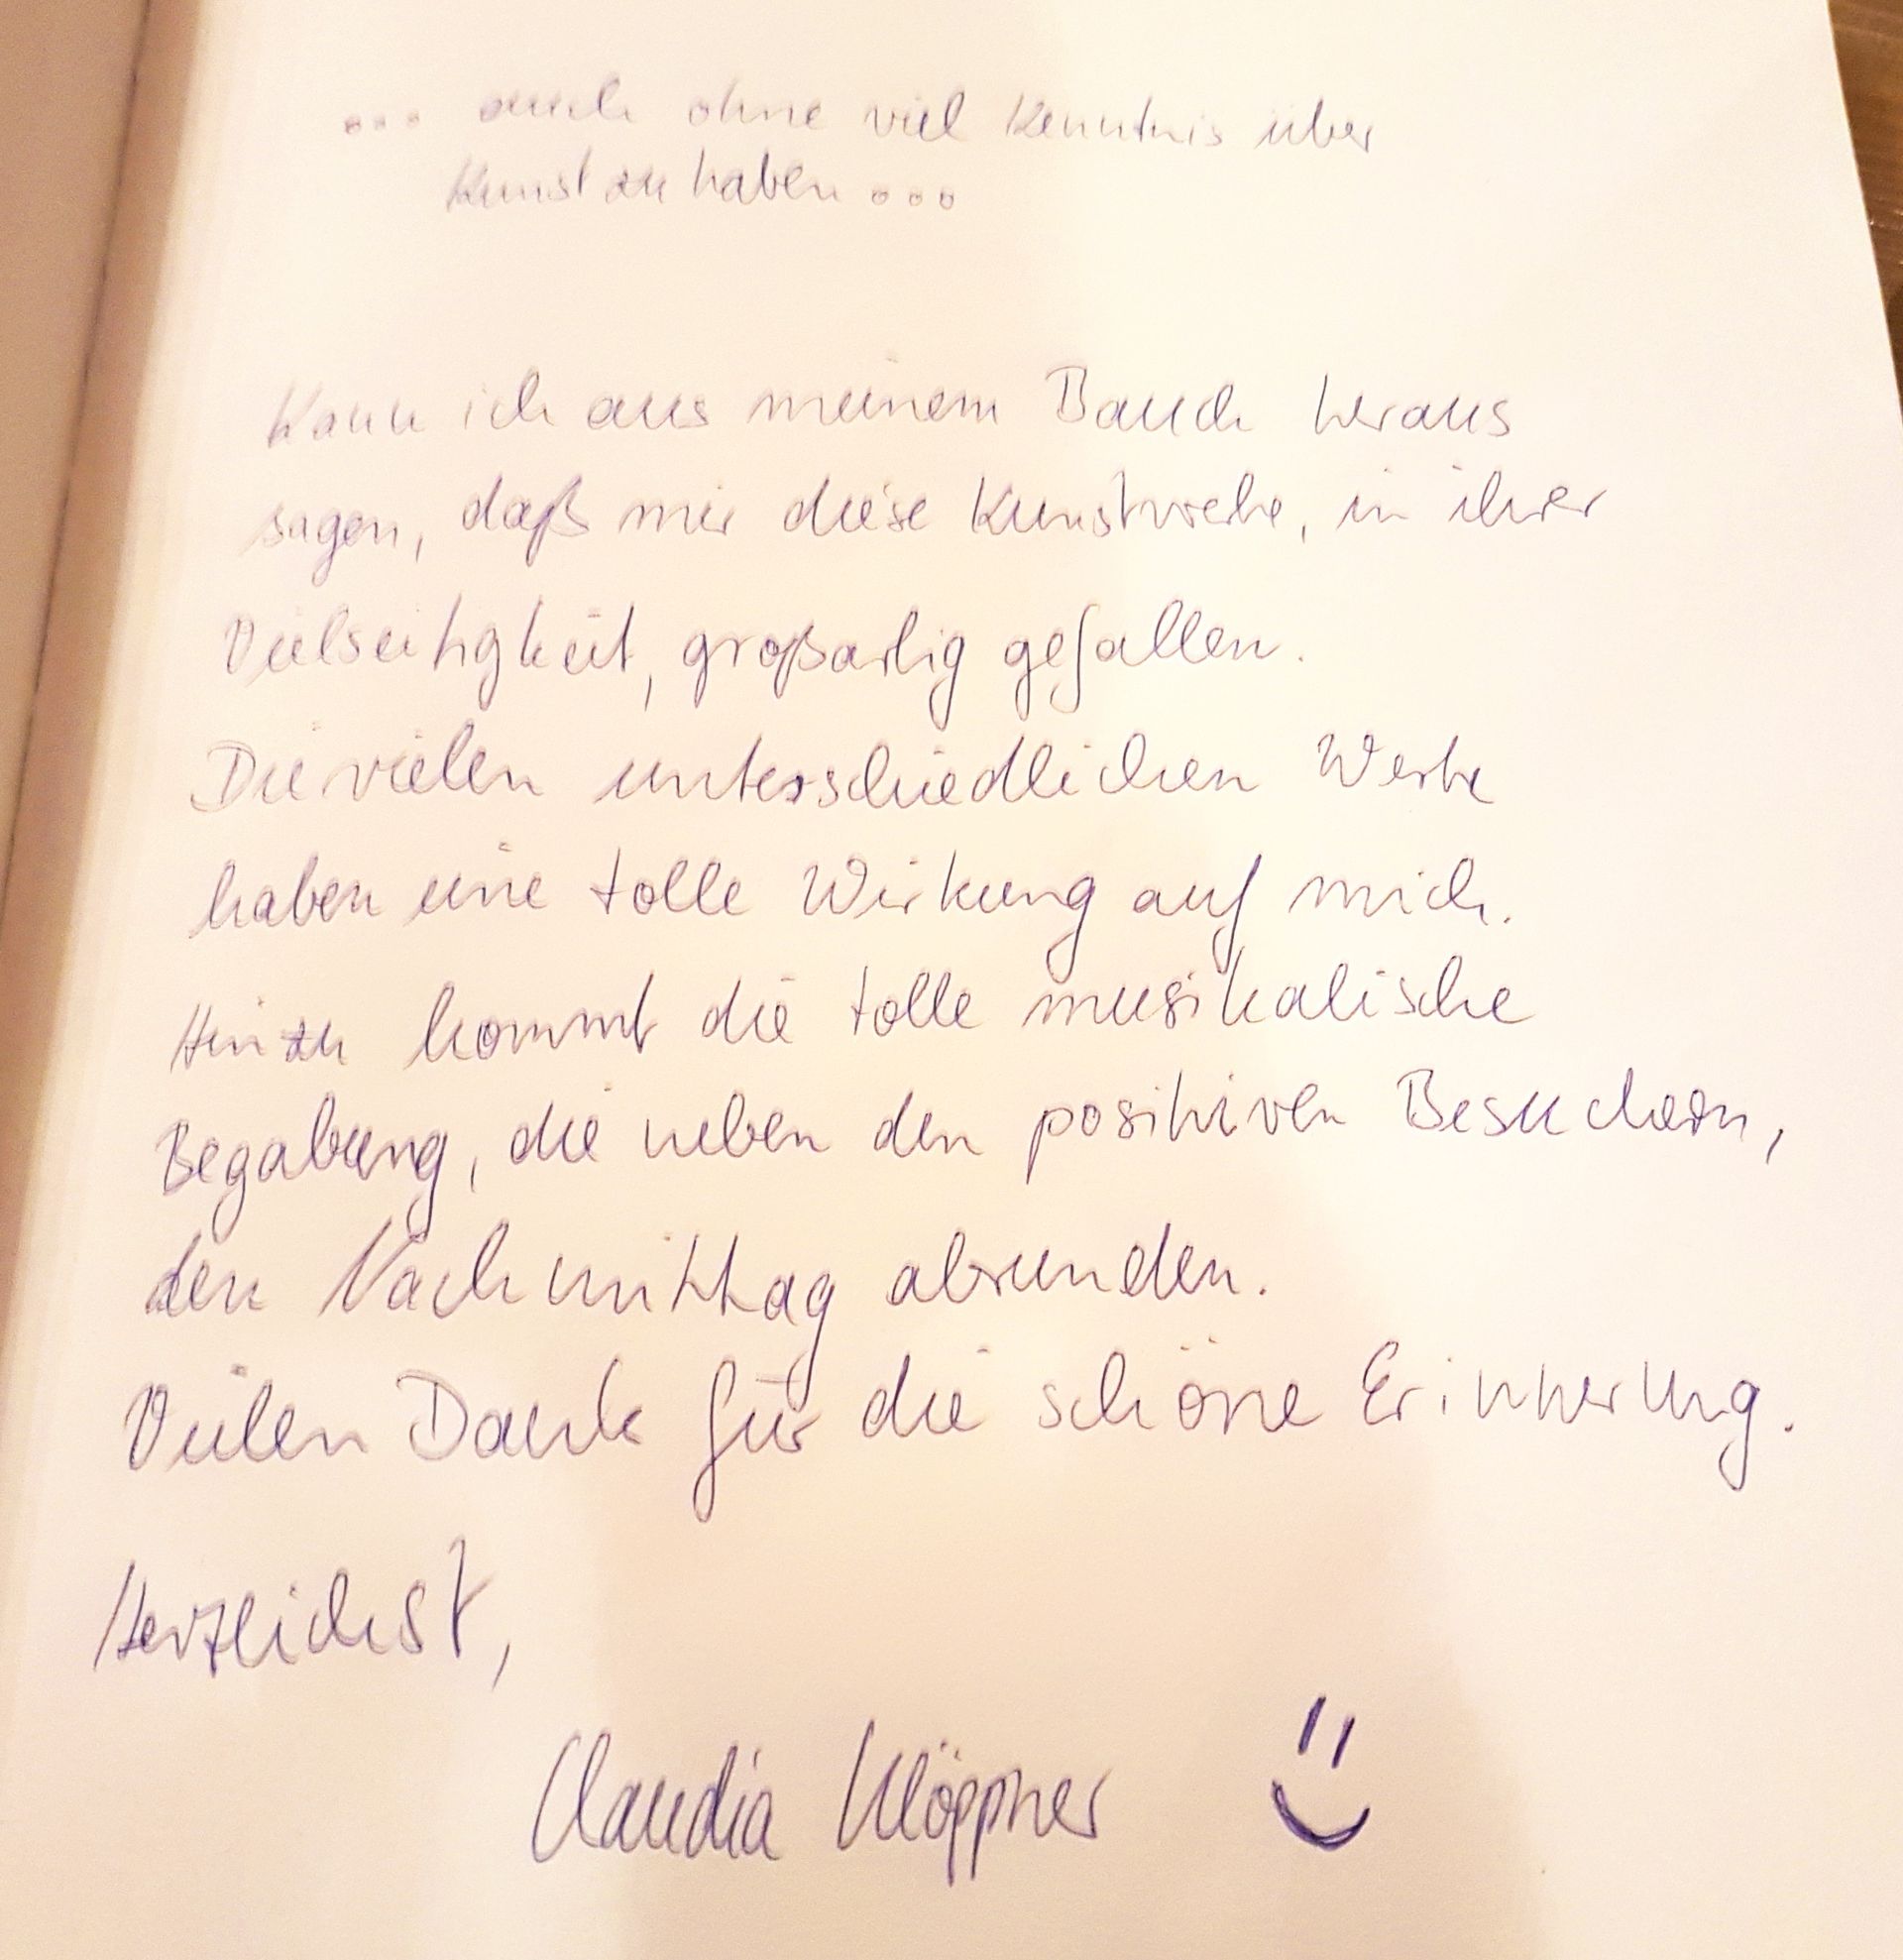 ... auch ohne viel Kenntnis über
Kunst zu haben ...
Kann ich aus meinem Bauch heraus
sagen, daß mir diese Kunstwerke, in ihrer
Vielseitigkeit, großartig gefallen.
Die vielen unterschiedlichen Werke
haben eine tolle Wirkung auf mich.
Hinzu kommt die tolle musikalische
Begabung, die neben den positiven Besuchern,
den Nachmittag abrunden.
Vielen Dank für die schöne Erinnerung.
Herzlichst,
Claudia Klöppner